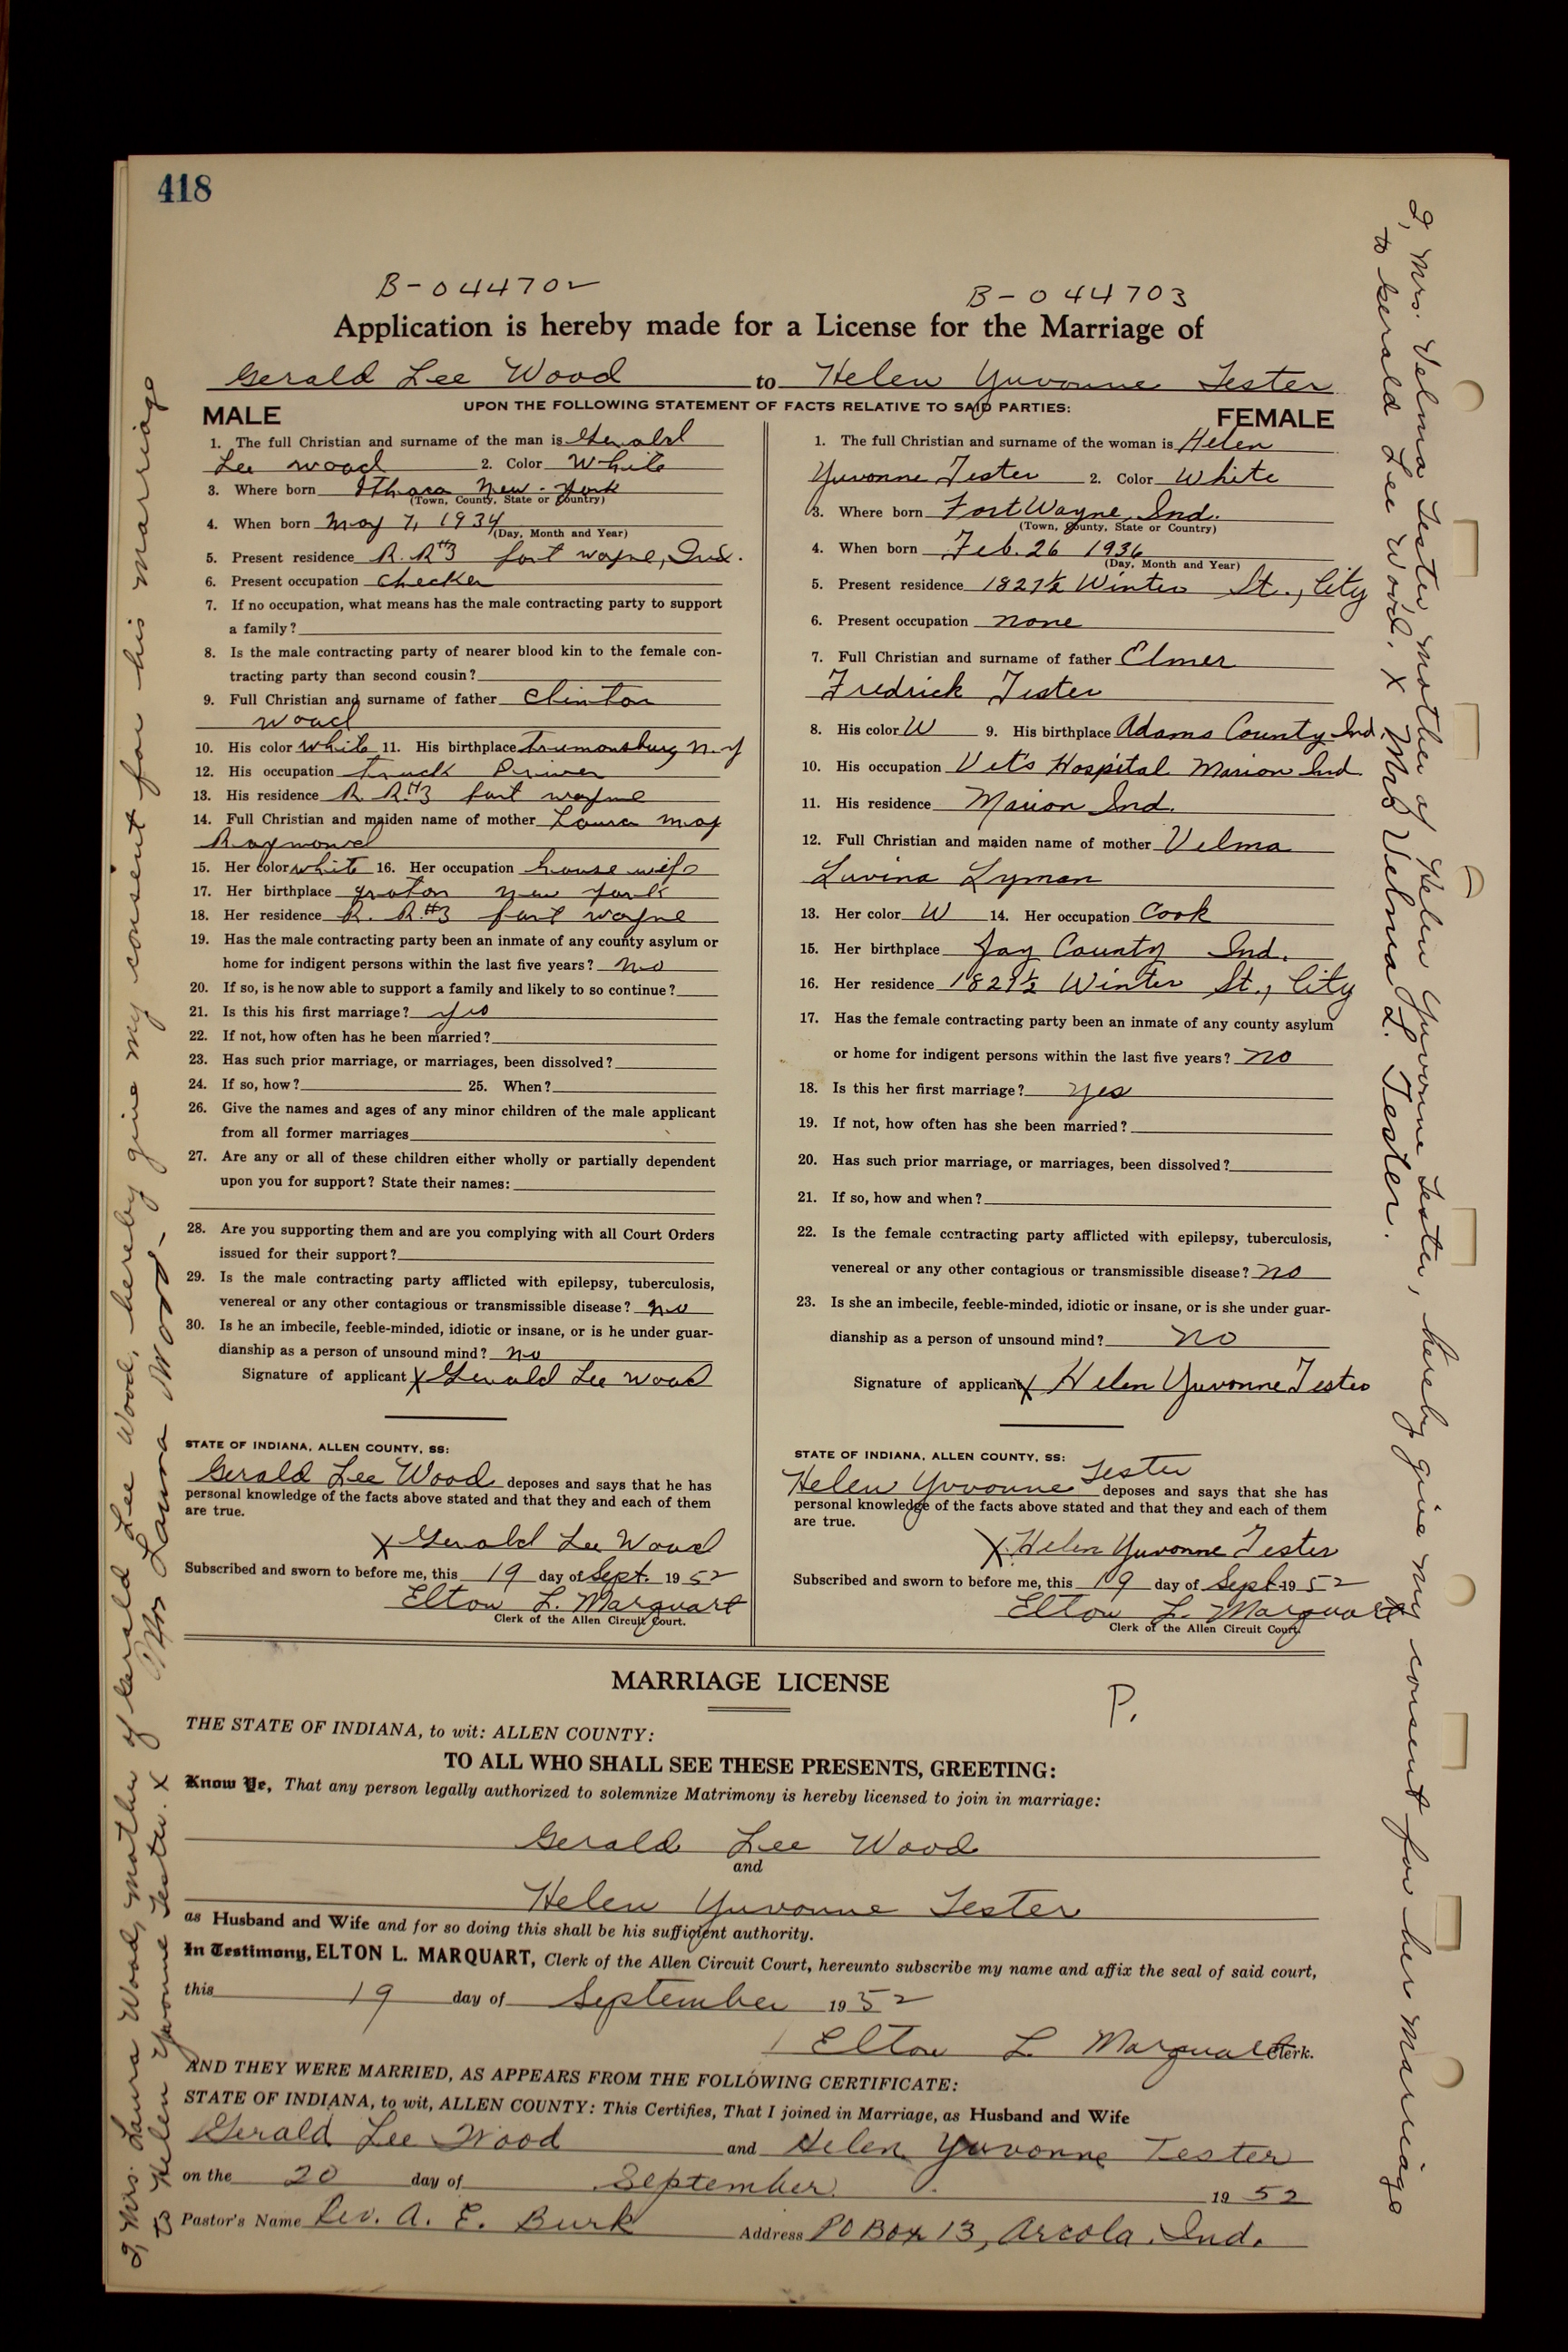 418
B-044702
B-044703
Application is hereby made for a License for the Marriage of
Gerald Lee Wood to Helen Yuvonne Tester
UPON THE FOLLOWING STATEMENT OF FACTS RELATIVE TO SAID PARTIES:
MALE
1. The full Christian and surname of the man is Gerald
Lee Wood 2. Color White
3. Where born Ithaca New-York
(Town, County, State or Country)
4. When born May 7, 1934
(Day, Month and Year)
5. Present residence R. R.#3 fort wayne, Ind.
6. Present occupation checker
7. If no occupation, what means has the male contracting party to support
a family?
8. Is the male contracting party of nearer blood kin to the female con-
tracting party than second cousin?
9. Full Christian and surname of father Clinton
Wood
10. His color white 11. His birthplace Trumonsburg N.Y
12. His occupation Truck Driver
13. His residence R. R.#3 fort wayne
14. Full Christian and maiden name of mother Laura May
Raymond
15. Her color white 16. Her occupation house wife
17. Her birthplace groton new york
18. Her residence R. R.#3 fort wayne
19. Has the male contracting party been an inmate of any county asylum or
home for indigent persons within the last five years? no
20. If so, is he now able to support a family and likely to so continue?
21. Is this his first marriage? yes
22. If not, how often has he been married?
23. Has such prior marriage, or marriages, been dissolved?
24. If so, how? 25. When?
26. Give the names and ages of any minor children of the male applicant
from all former marriages
27. Are any or all of these children either wholly or partially dependent
upon you for support? State their names:
28. Are you supporting them and are you complying with all Court Orders
issued for their support?
29. Is the male contracting party afflicted with epilepsy, tuberculosis,
venereal or any other contagious or transmissible disease? no
30. Is he an imbecile, feeble-minded, idiotic or insane, or is he under guar-
dianship as a person of unsound mind? no
Signature of applicant X Gerald Lee Wood
STATE OF INDIANA, ALLEN COUNTY, SS:
Gerald Lee Wood deposes and says that he has
personal knowledge of the facts above stated and that they and each of them
are true.
X Gerald Lee Wood
Subscribed and sworn to before me, this 19 day of Sept. 1952
Elton L. Marquart
Clerk of the Allen Circuit Court.
FEMALE
1. The full Christian and surname of the woman is Helen
Yuvonne Tester 2. Color White
3. Where born Fort Wayne, Ind.
(Town, County, State or Country)
4. When born Feb. 26 1936
(Day, Month and Year)
5. Present residence 1827½ Winter St., City
6. Present occupation none
7. Full Christian and surname of father Elmer
Fredrick Tester
8. His color W 9. His birthplace Adams County Ind.
10. His occupation Vet's Hospital Marion Ind
11. His residence Marion Ind.
12. Full Christian and maiden name of mother Velma
Luvina Lyman
13. Her color W 14. Her occupation Cook
15. Her birthplace Jay County Ind.
16. Her residence 1827½ Winter St., City
17. Has the female contracting party been an inmate of any county asylum
or home for indigent persons within the last five years? no
18. Is this her first marriage? yes
19. If not, how often has she been married?
20. Has such prior marriage, or marriages, been dissolved?
21. If so, how and when?
22. Is the female contracting party afflicted with epilepsy, tuberculosis,
venereal or any other contagious or transmissible disease? no
23. Is she an imbecile, feeble-minded, idiotic or insane, or is she under guar-
dianship as a person of unsound mind? no
Signature of applicant X Helen Yuvonne Tester
STATE OF INDIANA, ALLEN COUNTY, SS:
Helen Yuvonne Tester deposes and says that she has
personal knowledge of the facts above stated and that they and each of them
are true.
X Helen Yuvonne Tester
Subscribed and sworn to before me, this 19 day of Sept. 1952
Elton L. Marquart
Clerk of the Allen Circuit Court.
MARRIAGE LICENSE
P.
THE STATE OF INDIANA, to wit: ALLEN COUNTY:
TO ALL WHO SHALL SEE THESE PRESENTS, GREETING:
Know Ye, That any person legally authorized to solemnize Matrimony is hereby licensed to join in marriage:
Gerald Lee Wood
and
Helen Yuvonne Tester
as Husband and Wife and for so doing this shall be his sufficient authority.
In Testimony, ELTON L. MARQUART, Clerk of the Allen Circuit Court, hereunto subscribe my name and affix the seal of said court,
this 19 day of September 1952
Elton L. Marquart Clerk.
AND THEY WERE MARRIED, AS APPEARS FROM THE FOLLOWING CERTIFICATE:
STATE OF INDIANA, to wit, ALLEN COUNTY: This Certifies, That I joined in Marriage, as Husband and Wife
Gerald Lee Wood and Helen Yuvonne Tester
on the 20 day of September. 1952
Pastor's Name Rev. A. E. Burk Address PO Box 13, Arcola, Ind.
I, Mrs. Laura Wood, mother of Gerald Lee Wood, hereby give my consent for his marriage
to Helen Yuvonne Tester. X Mrs Laura Wood
I, Mrs. Velma Tester, mother of Helen Yuvonne Tester, hereby give my consent for her marriage
to Gerald Lee Wood. X Mrs Velma L. Tester.